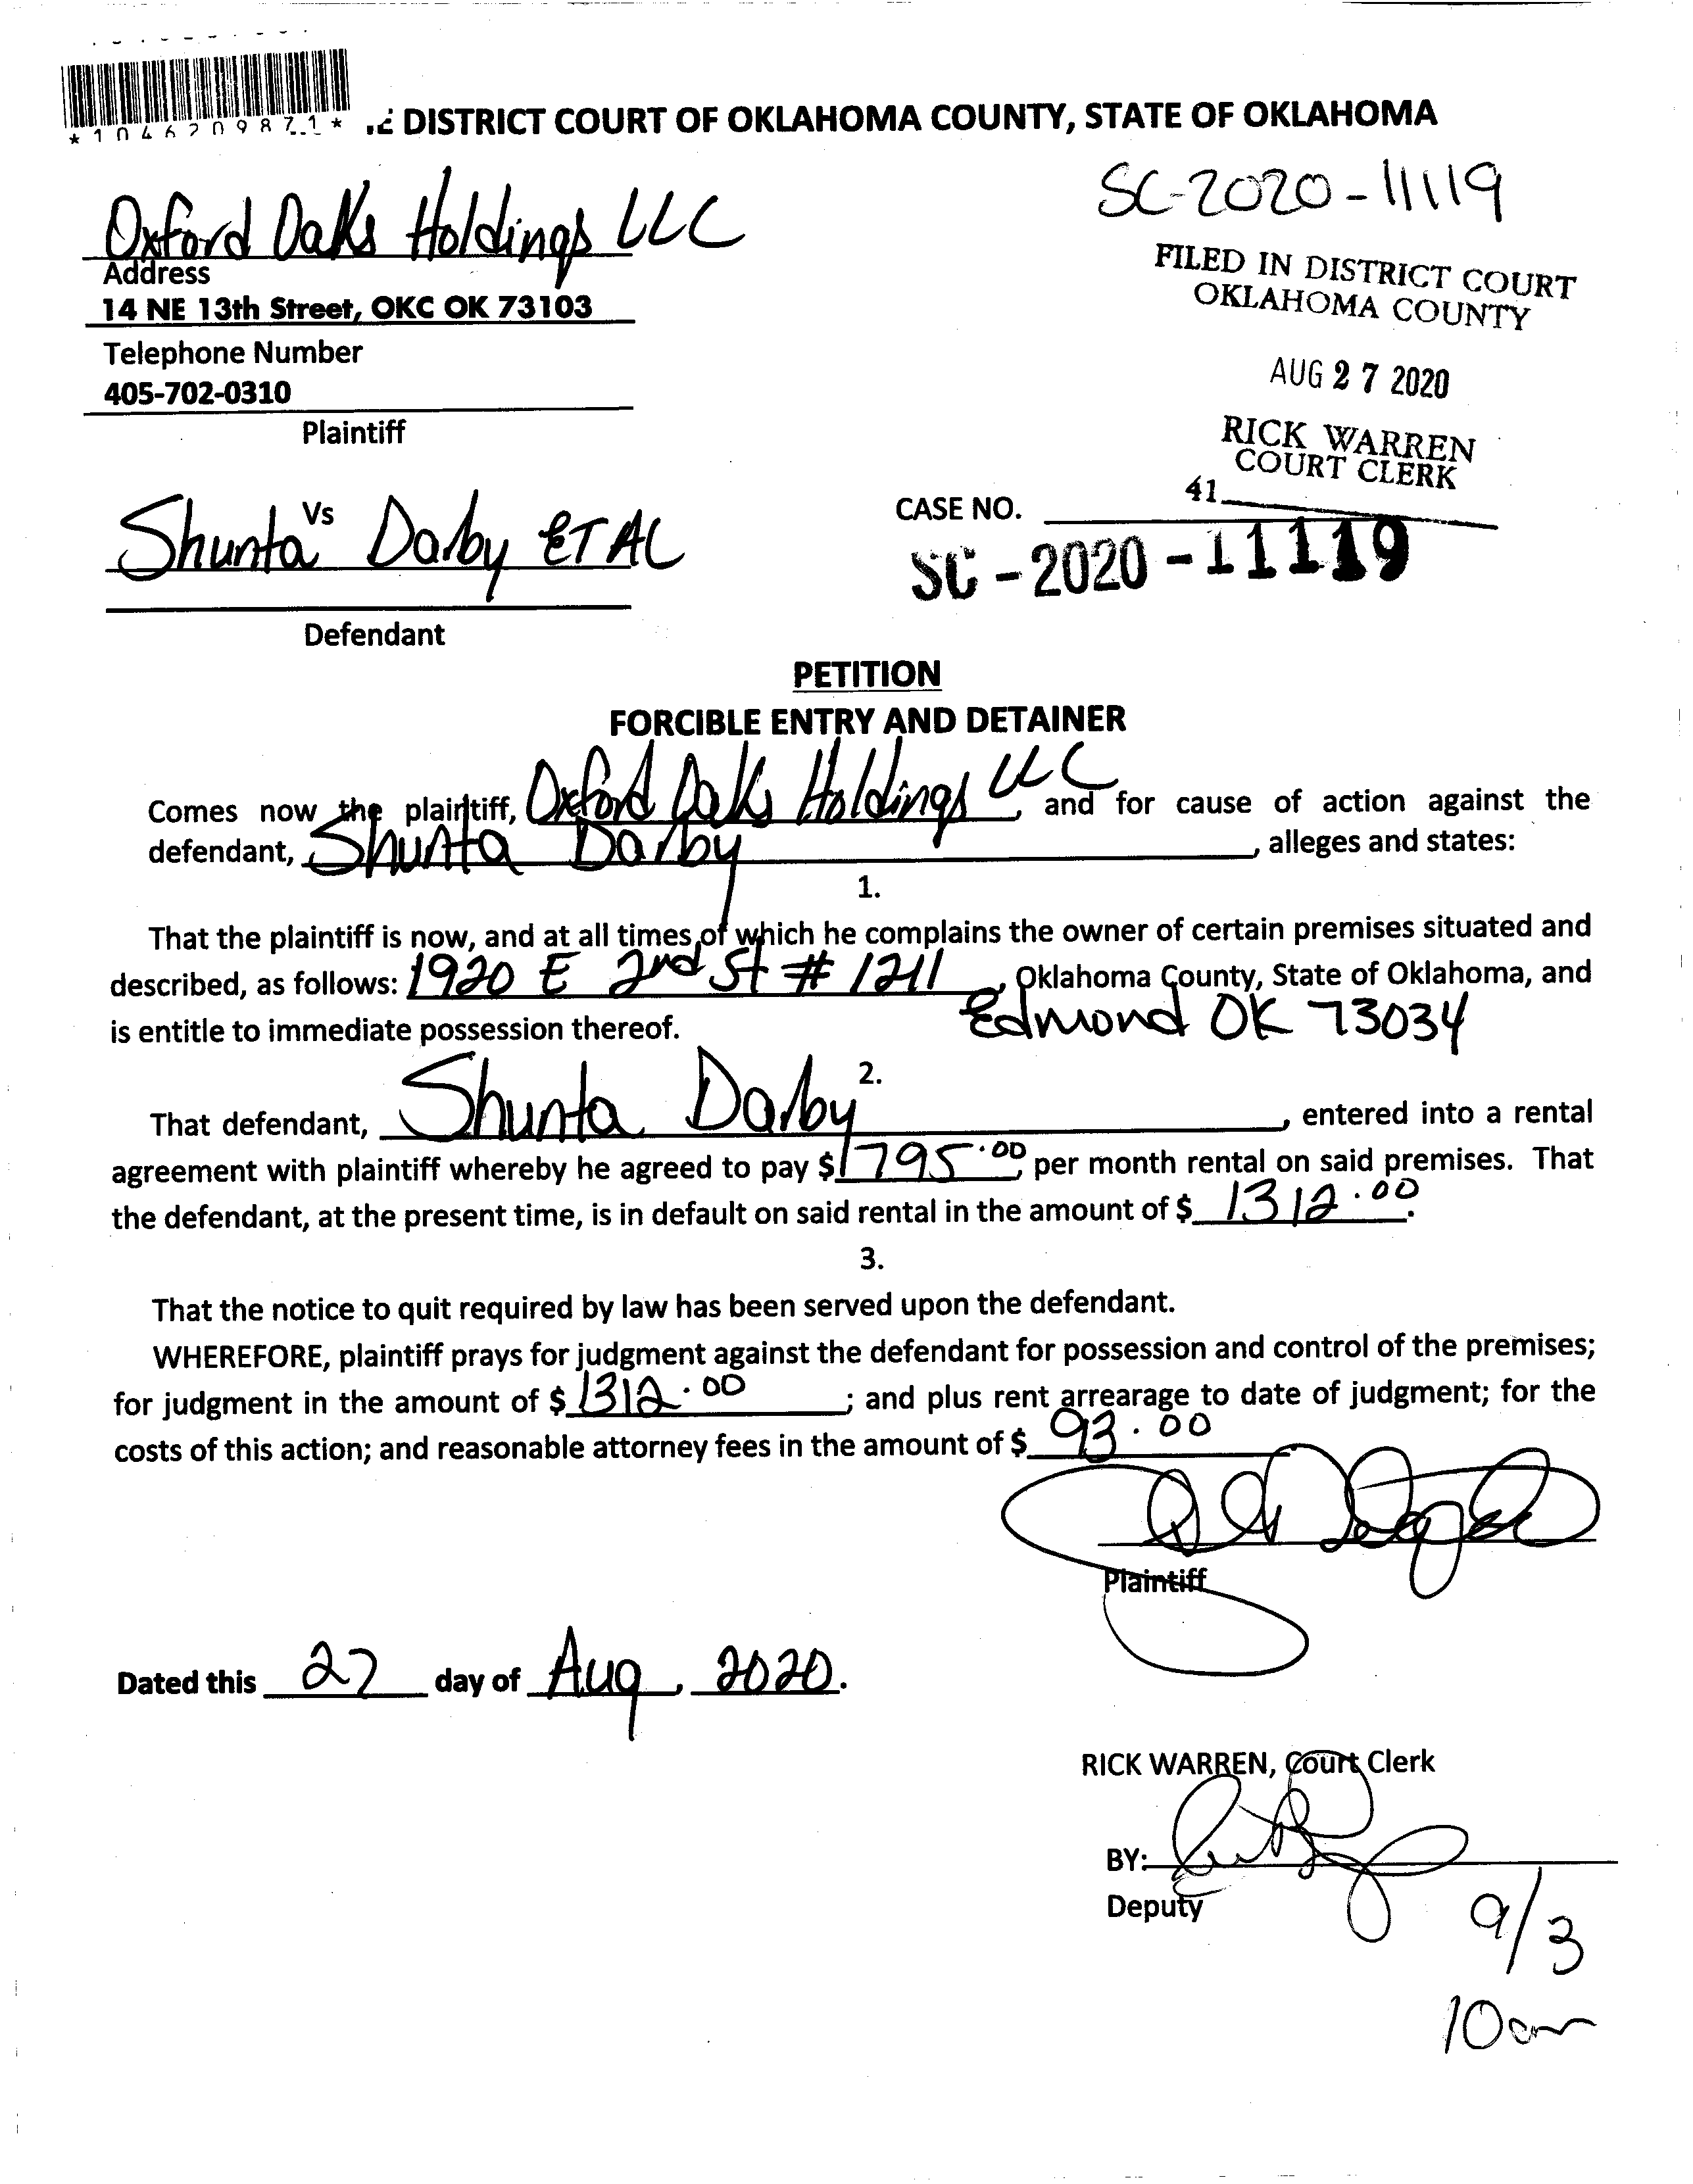 *1046209871*
DISTRICT COURT OF OKLAHOMA COUNTY, STATE OF OKLAHOMA
SC-2020-11119
Oxford Oaks Holdings LLC
Address
14 NE 13th Street, OKC OK 73103
Telephone Number
405-702-0310
Plaintiff
FILED IN DISTRICT COURT
OKLAHOMA COUNTY
AUG 27 2020
RICK WARREN
COURT CLERK
41
Vs
Shunta Darby ET AL
Defendant
CASE NO.
SC-2020-11119
PETITION
FORCIBLE ENTRY AND DETAINER
Comes now the plaintiff, Oxford Oaks Holdings LLC, and for cause of action against the
defendant, Shunta Darby, alleges and states:
1.
That the plaintiff is now, and at all times of which he complains the owner of certain premises situated and
described, as follows: 1920 E 2nd St # 1211, Oklahoma County, State of Oklahoma, and
Edmond OK 73034
is entitle to immediate possession thereof.
2.
That defendant, Shunta Darby, entered into a rental
agreement with plaintiff whereby he agreed to pay $ 795.00, per month rental on said premises. That
the defendant, at the present time, is in default on said rental in the amount of $ 1312.00.
3.
That the notice to quit required by law has been served upon the defendant.
WHEREFORE, plaintiff prays for judgment against the defendant for possession and control of the premises;
for judgment in the amount of $ 1312.00; and plus rent arrearage to date of judgment; for the
costs of this action; and reasonable attorney fees in the amount of $ 93.00
Plaintiff
Dated this 27 day of Aug, 2020.
RICK WARREN, Court Clerk
BY:
Deputy
9/3
10am